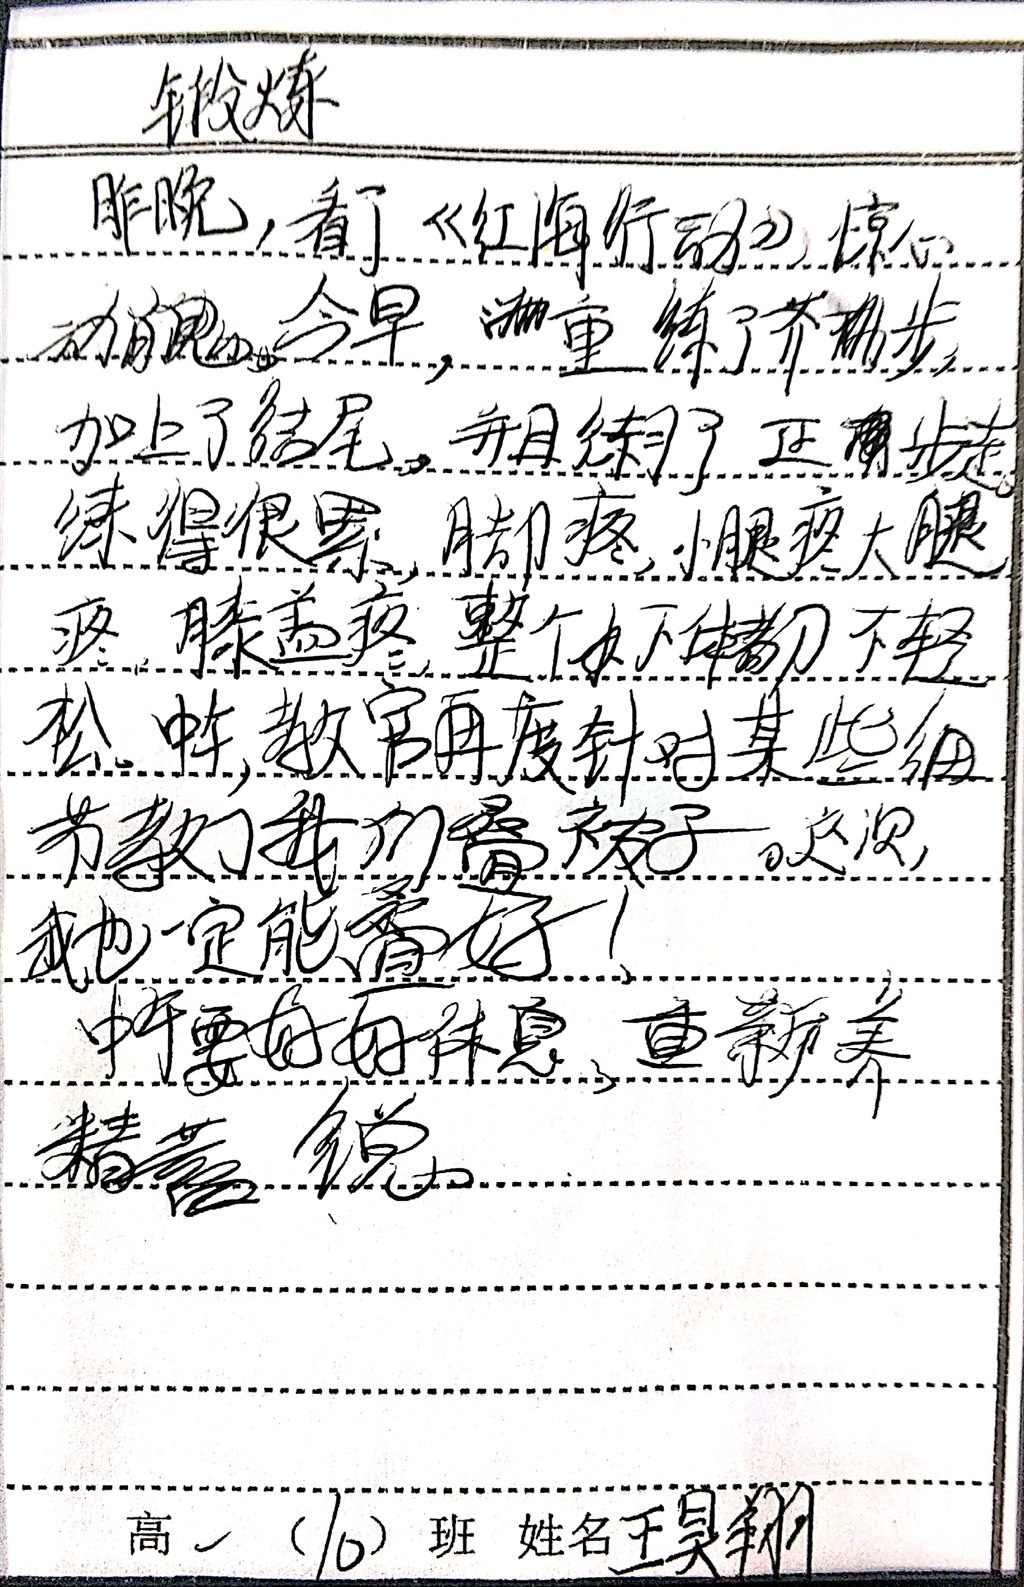 锻炼
昨晚，看了《红海行动》，惊心
动魄。今早，重练了齐步，
加上了结尾，并且练习了正步走。
练得很累，脚疼，小腿疼，大腿
疼，膝盖疼，整个下体都不轻
松。中午，教官再度针对某些细
节教了我们叠被子。这次，
我也一定能叠好！
中午要好好休息，重新养
精蓄锐。
高一（10）班 姓名王昊翔